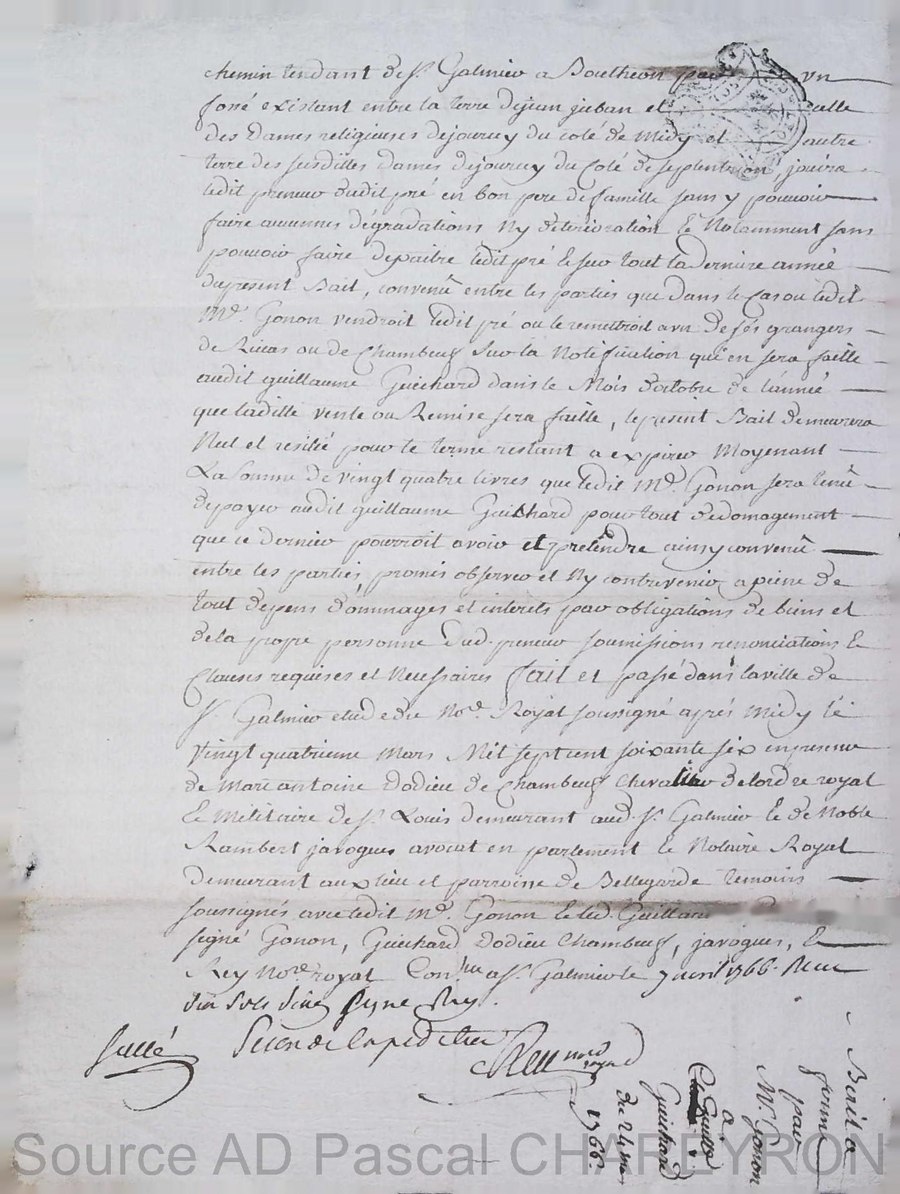 chemin tendant de St. Galmier a Boutheon par un
fossé existant entre la terre de jean juban et celle
des Dames religieuses de jourcey du coté de Midy et autre
terre des susdittes dames de jourcey du Coté de septentrion, jouira
ledit preneur dudit pré en bon pere de famille sans y pouvoir
faire aucunnes dégradations Ny détérioration & Notamment sans
pouvoir faire depaitre ledit pré & sur tout la derniere année
du present Bail, convenû entre les parties que dans le Cas ou ledit
Mr. Gonon vendroit ledit pré ou le remettroit a un de ses grangers
de Rivas ou de Chambeuf sur la Notification qui en sera faitte
audit guillaume Guichard dans le Mois d'octobre de l'année
que laditte vente ou Remise sera faitte, le present Bail demeurera
Nul et resilié pour le terme restant a expirer Moyenant
La somme de vingt quatre livres que ledit Mr. Gonon sera tenû
de payer audit guillaume Guichard pour tout dedomagement
que ce dernier pourroit avoir et prétendre ainsy convenû
entre les parties, promis observer et Ny contrevenir a peine de
tout depens dommages et interets par obligations de biens et
de la propre personne dud. preneur soumissions renonciations &
Clauses requises et Necessaires fait et passé dans la ville de
St. Galmier etude du Nore. Royal soussigné aprés Midy le
vingt quatrieme Mars Mil sept cent soixante six en presence
de Marc antoine Dodieu de Chambeuf chevalier de lordre royal
& Militaire de St. Louis demeurant aud. St. Galmier & de Noble
Rambert javogues avocat en parlement & Notaire Royal
demeurant aux lieu et parroisse de Bellegarde temoins
soussignés avec ledit Mr. Gonon & led. Guillau
signé Gonon, Guichard Dodieu Chambeuf, javogues, &
Rey Nore. royal Conlle. a St. Galmier le 7 avril 1766. Recu
six sols signe Rey.
scellé
Seconde Expedition
Rey nore royal
Bail a
ferme
par
Mr. Gonon
a
Guille
Guichard
du 24 mars
1766.
Source AD Pascal CHAREYRON